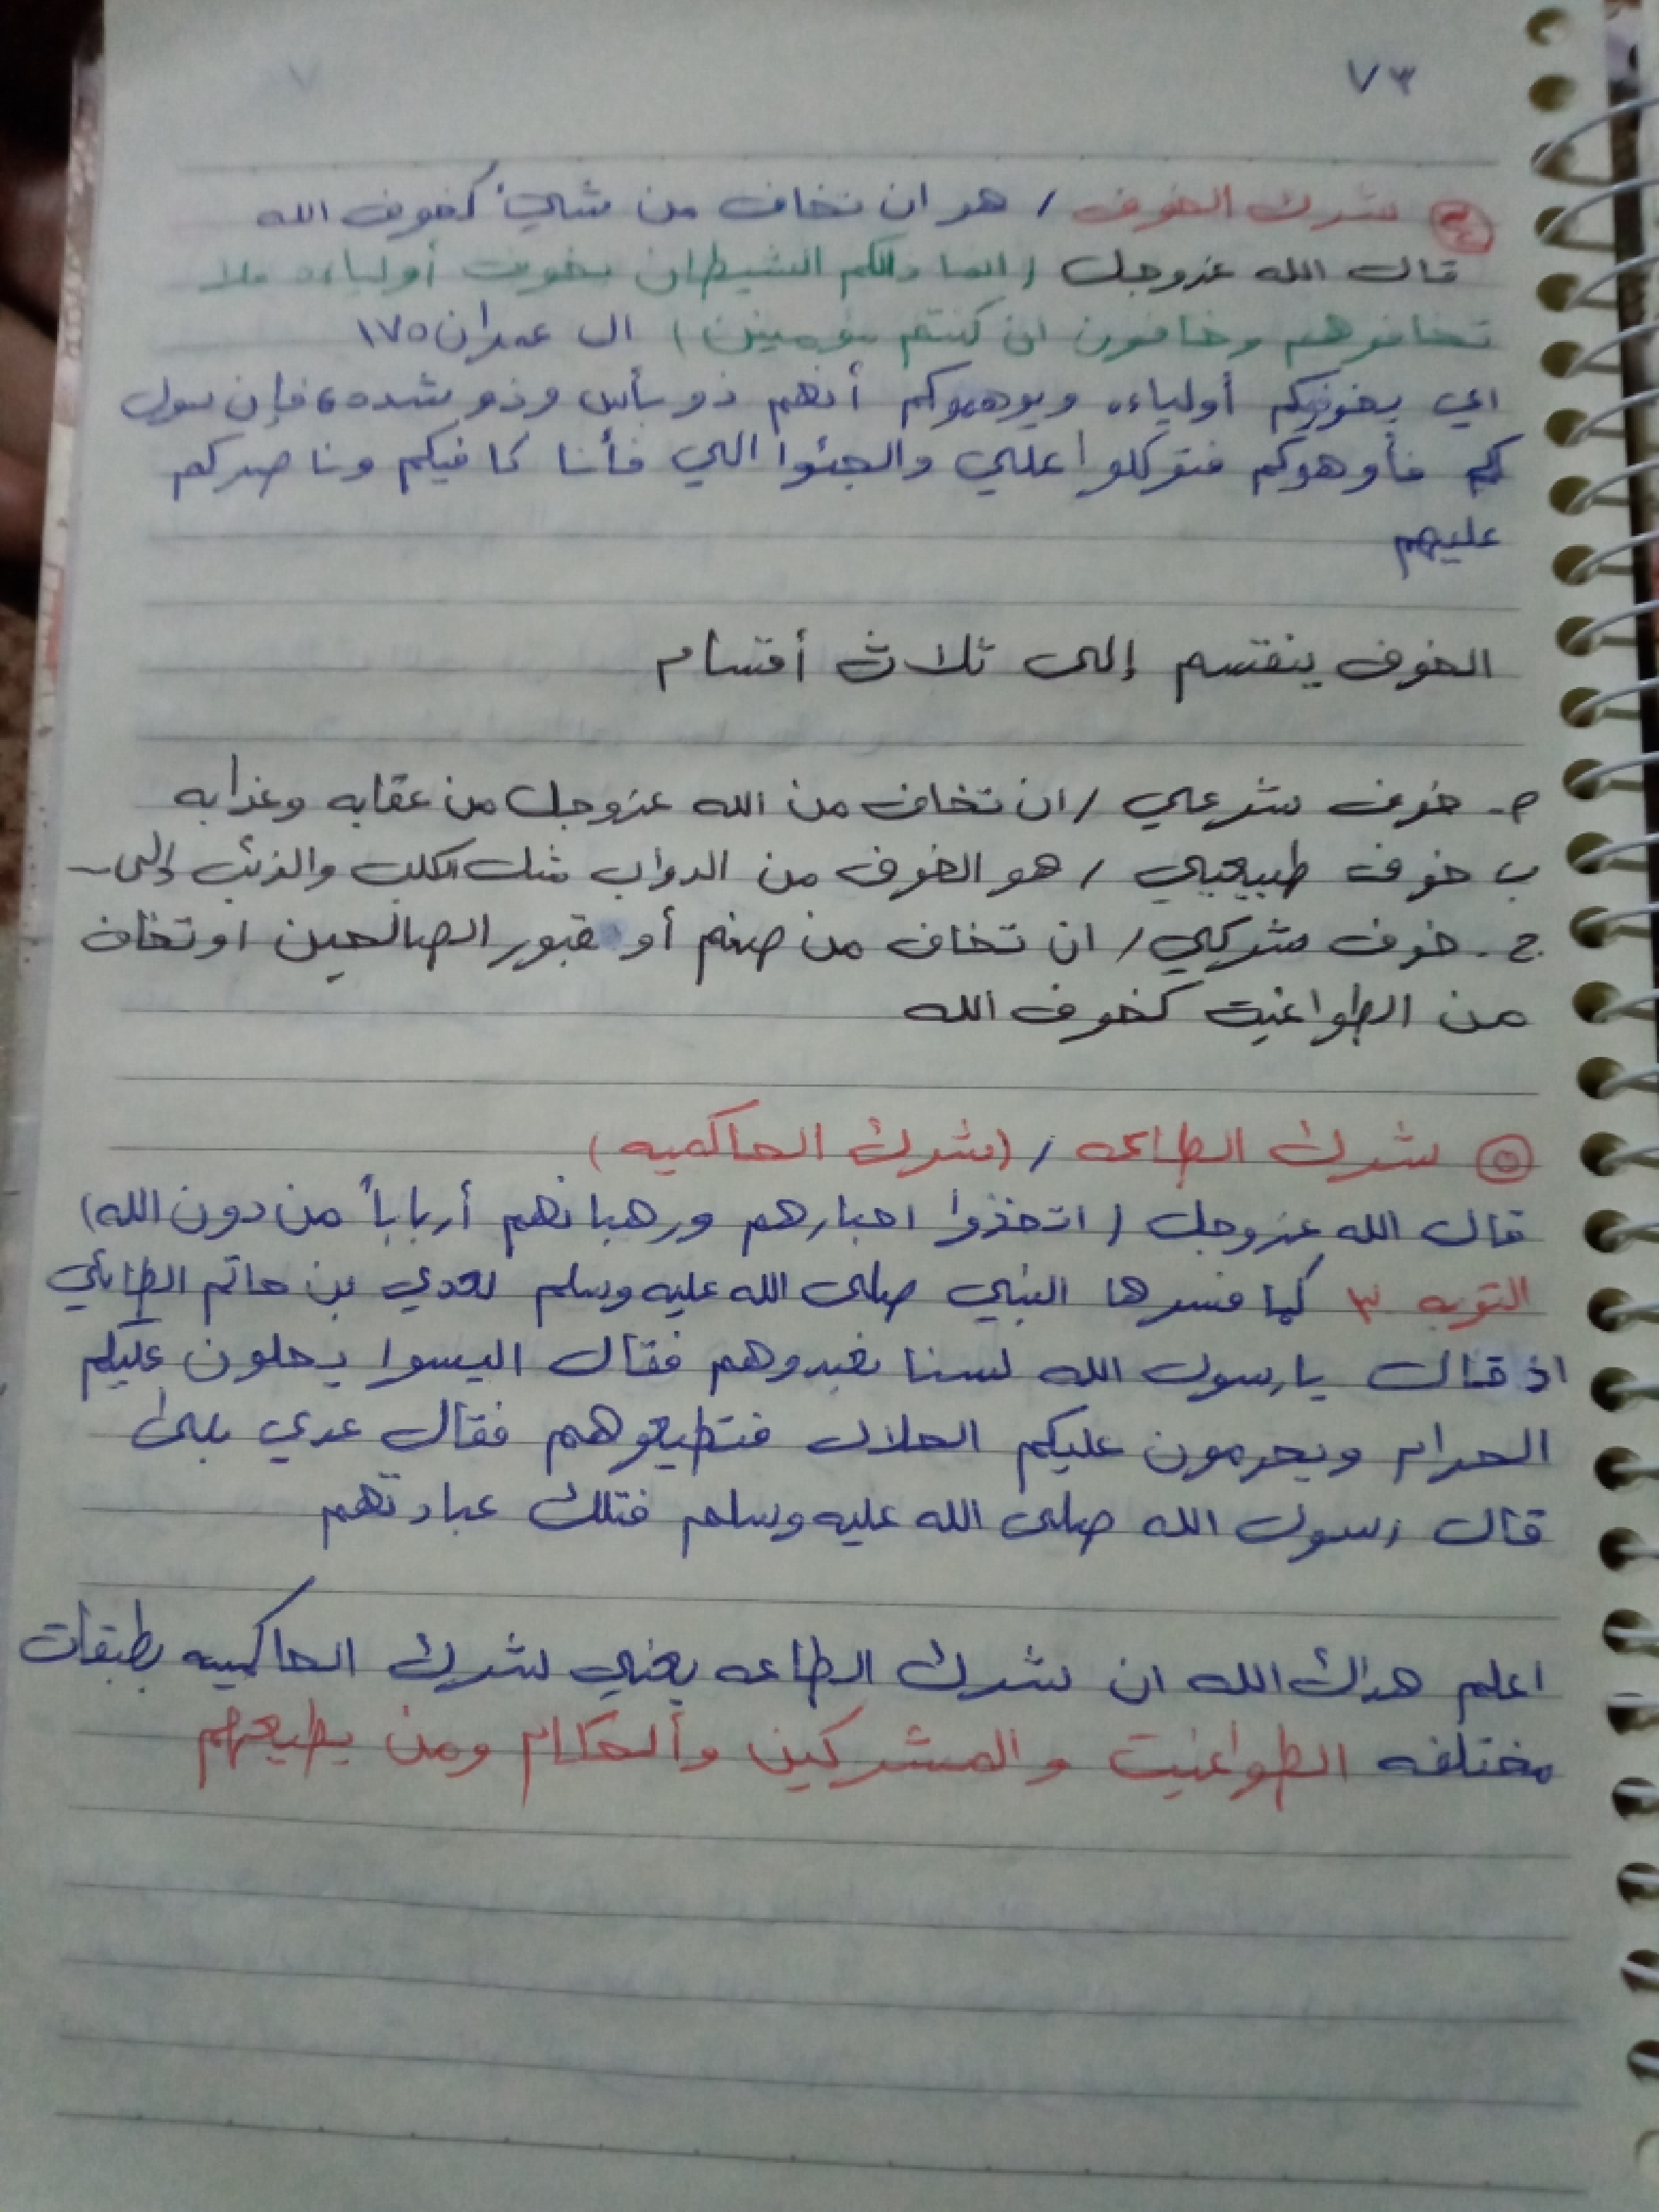 ٧٣
④ شرك الخوف / هو ان تخاف من شيئ كخوف الله
قال الله عزوجل (انما ذلكم الشيطان يخوف أولياءه فلا
تخافوهم وخافون ان كنتم مؤمنين) ال عمران ١٧٥
اي يخوفكم أولياءه ويوهموكم أنهم ذو بأس وذو شده، فإن سول
لكم فأوهوكم فتوكلوا علي والجئوا الي فأنا كافيكم وناصركم
عليهم
الخوف ينقسم إلى ثلاث أقسام
خوف شرعي / ان تخاف من الله عزوجل من عقابه وعذابه
ب خوف طبيعيي / هو الخوف من الدواب مثل الكلب والذئب إلى
ج. خوف شركي / ان تخاف من صنم أو قبور الصالحين او تخاف
من الطواغيت كخوف الله
⑤ شرك الطاعه / (شرك الحاكميه)
قال الله عزوجل (اتخذوا احبارهم ورهبانهم أرباباً من دون الله)
التوبه ٣ كما فسرها النبي صلى الله عليه وسلم لعدي بن حاتم الطائي
اذ قال يارسول الله لسنا نعبدوهم فقال اليسوا يحلون عليكم
الحرام ويحرمون عليكم الحلال فتطيعوهم فقال عدي بلى
قال رسول الله صلى الله عليه وسلم فتلك عبادتهم
اعلم هداك الله ان شرك الطاعه يعني شرك الحاكميه بطبقات
مختلفه الطواغيت والمشركين وألحكام ومن يطيعهم